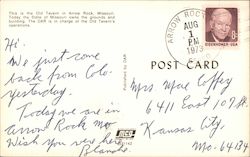 This is the Old Tavern in Arrow Rock, Missouri.
Today the State of Missouri owns the grounds and
building. The DAR is in charge of the Old Tavern's
operations.
ARROW ROCK
AUG
1
PM
1973
EISENHOWER · USA
8c
POST CARD
Hi.
We just come
back from Colo-
yesterday.
Today we are in
Arrow Rock Mo
Wish you were here
Blanche
Mrs Mae Coffey
6411 East 107th
Kansas City.
Mo-64134